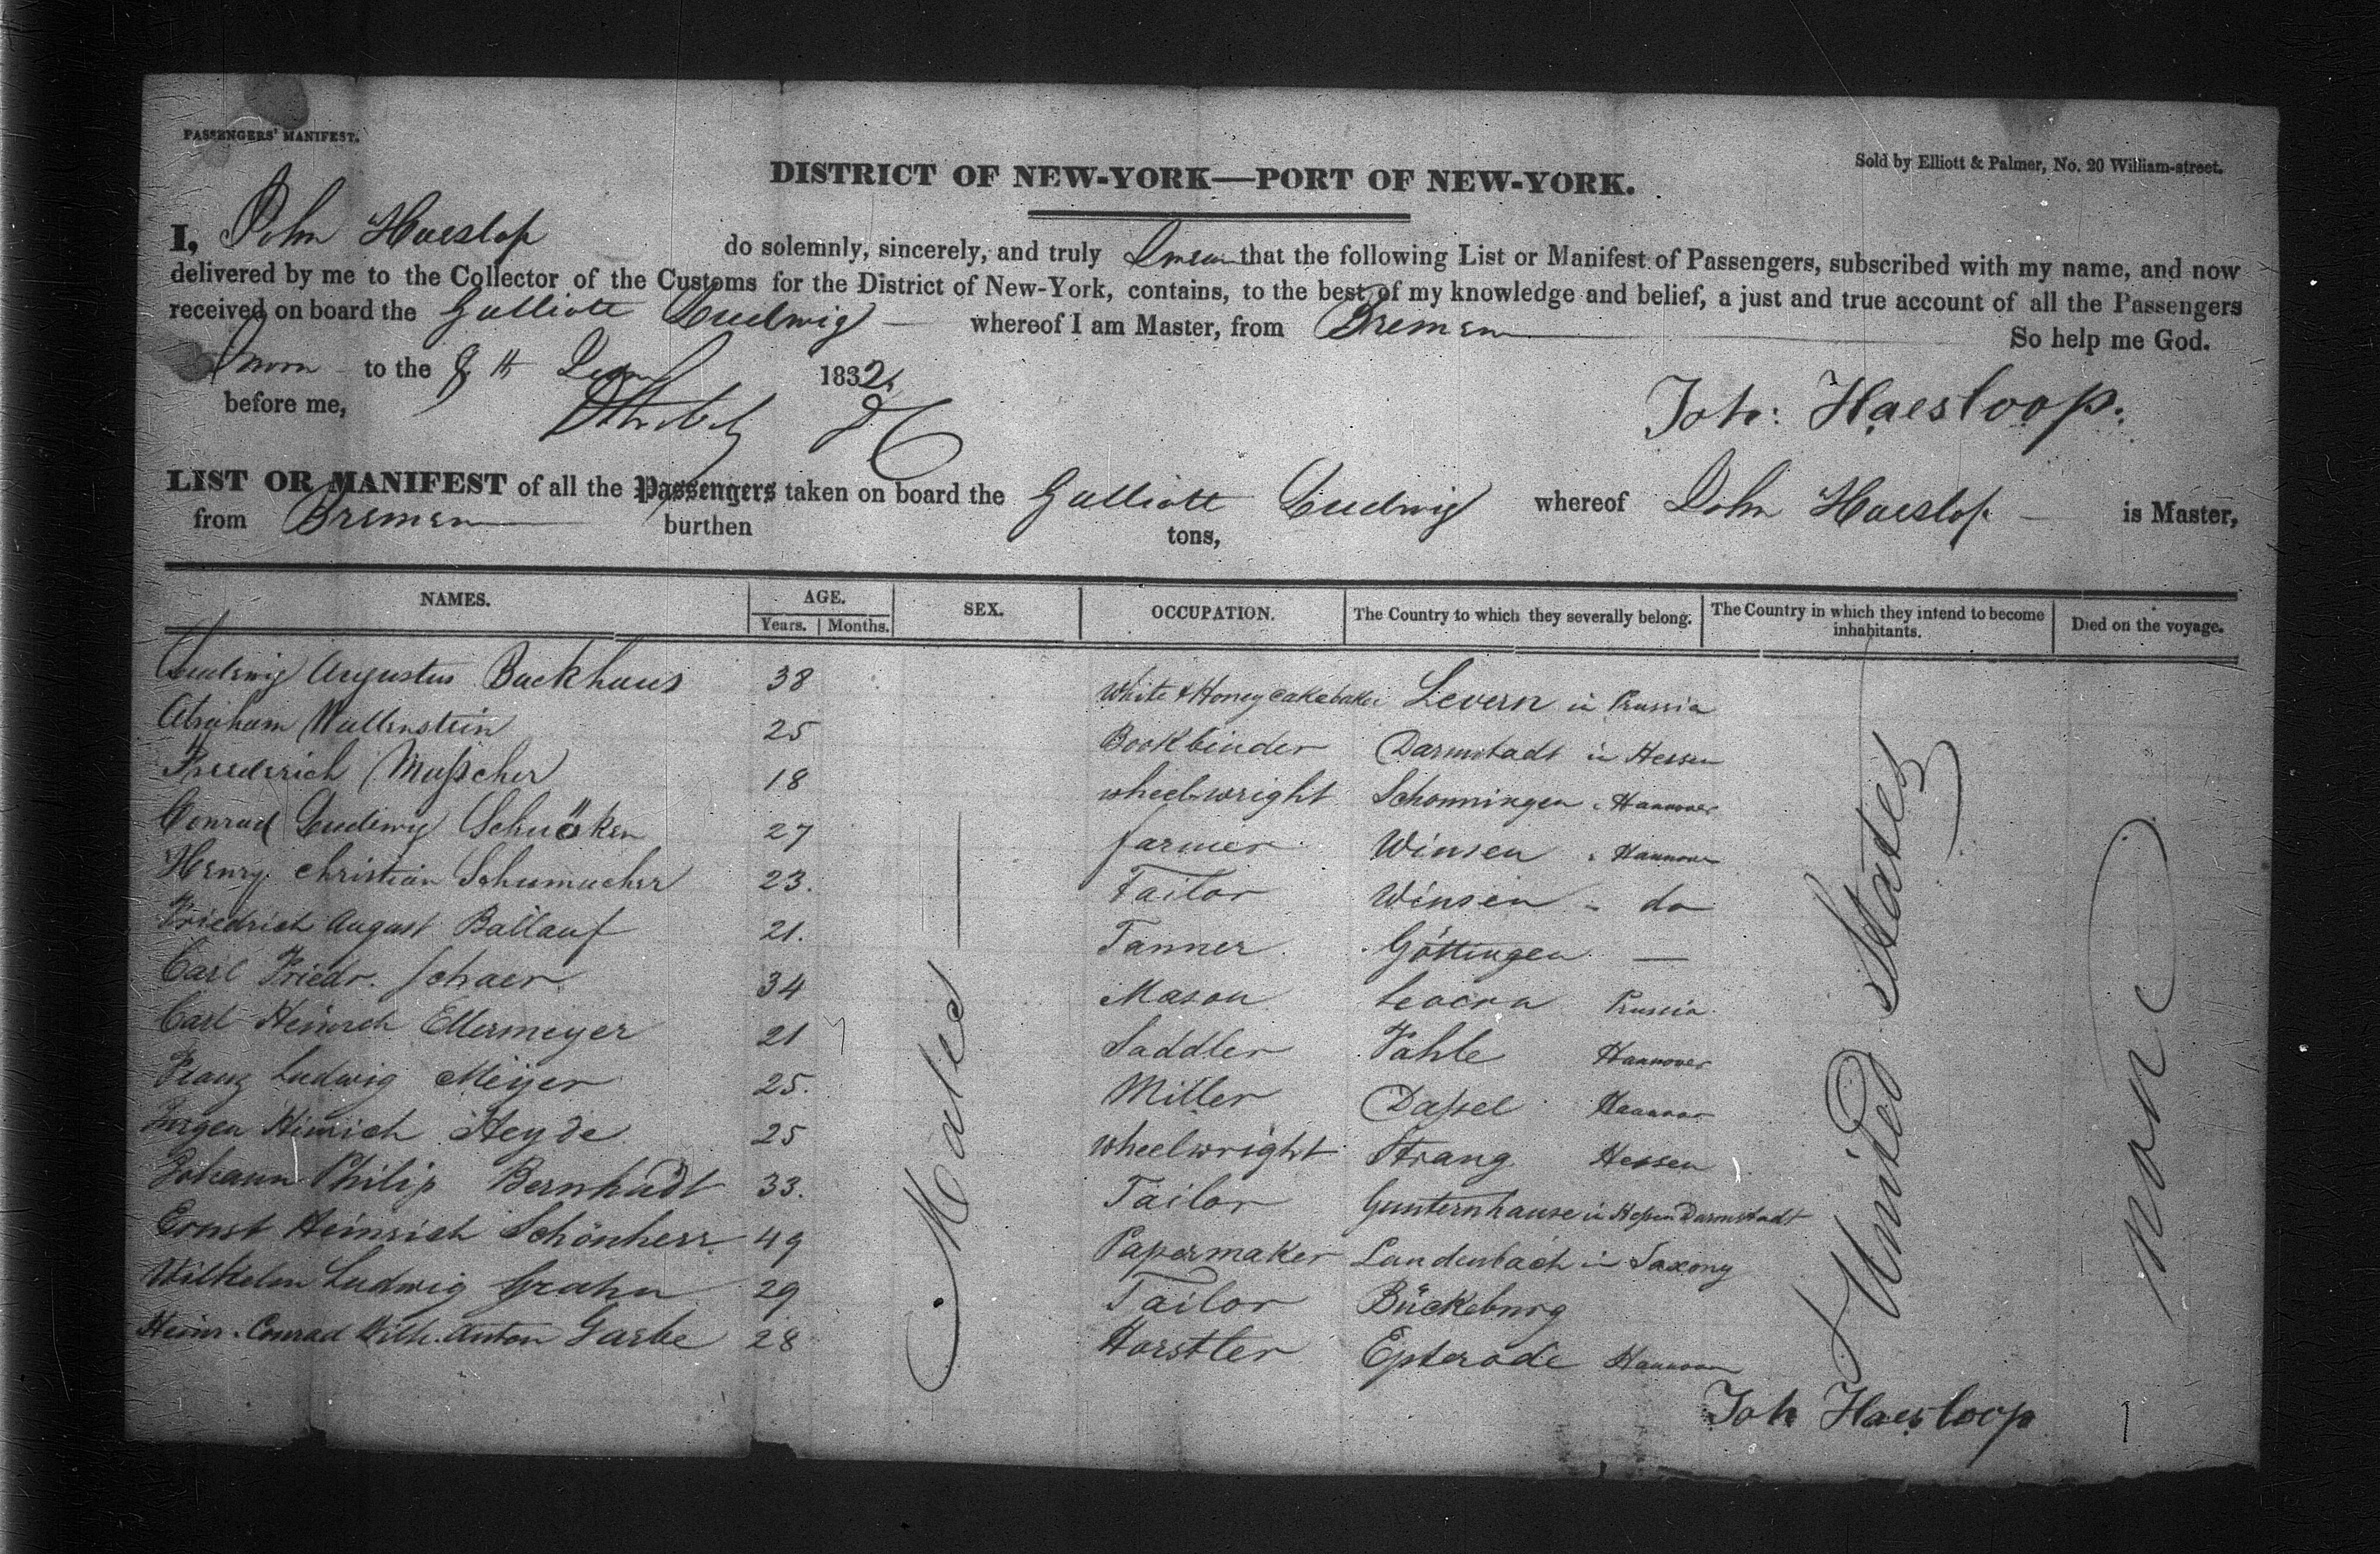 PASSENGERS' MANIFEST.
Sold by Elliott & Palmer, No. 20 William-street.
DISTRICT OF NEW-YORK—PORT OF NEW-YORK.
I, John Haeslop do solemnly, sincerely, and truly Swear that the following List or Manifest of Passengers, subscribed with my name, and now
delivered by me to the Collector of the Customs for the District of New-York, contains, to the best of my knowledge and belief, a just and true account of all the Passengers
received on board the Galliott Ludwig whereof I am Master, from Bremen So help me God.
Sworn to the 8th 1832
before me,
Joh: Haesloop.
LIST OR MANIFEST of all the Passengers taken on board the Galliott Ludwig whereof John Haeslop is Master,
from Bremen burthen tons,
NAMES. AGE. Years. Months. SEX. OCCUPATION. The Country to which they severally belong. The Country in which they intend to become inhabitants. Died on the voyage.
Ludewig Augustus Backhaus 38 White & Honeycakebaker Levern in Prussia
Abraham Wallenstein 25 Bookbinder Darmstadt in Hessen
Friederich Maßcher 18 wheelwright Schonningen Hannover
Conrad Ludewig 27 farmer Winsen Hannover
Henry Christian Schumacher 23. Tailor Winsen - do
Friedrich August Ballauf 21. Tanner Göttingen —
Carl Friedr. Schaer 34 Mason Prussia
Carl Heinrich Ellermeyer 21 Saddler Vahle Hannover
Franz Ludwig Meijer 25. Miller Daßel Hannover
Jurgen Hinrich Heyde 25 wheelwright Strang Hessen
Johann Philip Bernhadt 33. Tailor Gunternhause in Heßen Darmstadt
Ernst Heinrich Schönherr 49 Papermaker Laudenbach in Saxony
Wilhelm Ludwig Grahn 29 Tailor Bückeburg
Heinr. Conrad Wilh. Anton Garbe 28 Horstler Epterode Hannover
Males
United States
non
Joh Haesloop